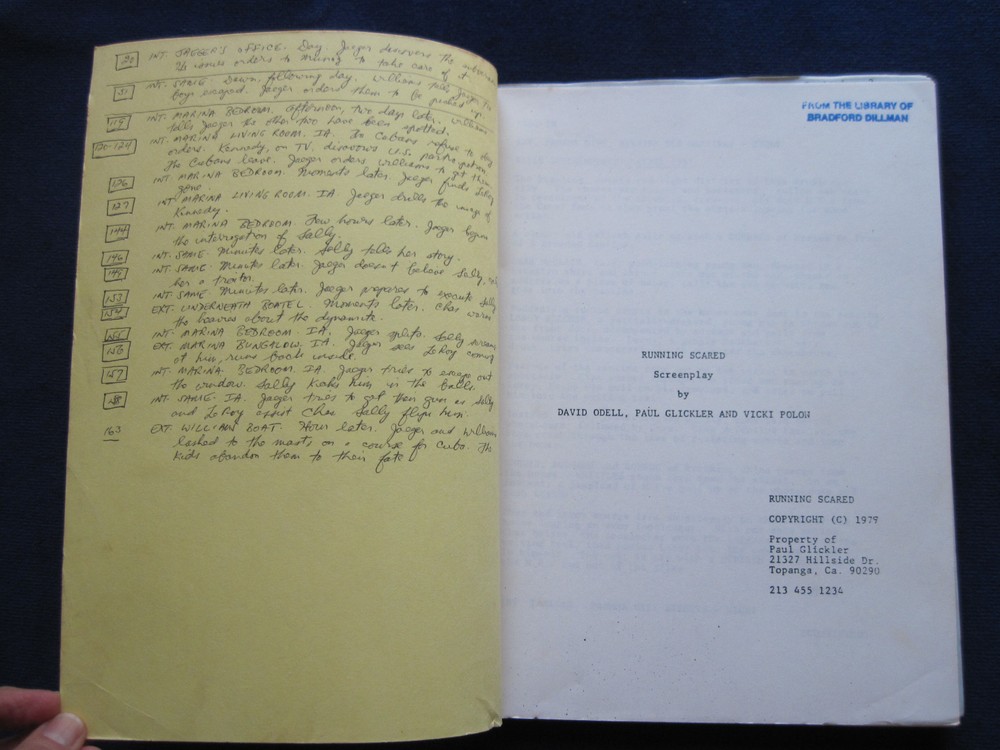 30 INT. JAEGER'S OFFICE. Day. Jaeger discovers the
orders to to take care of it
31 INT. SAME. Dawn, following day. Williams tells Jaeger the
boys escaped. Jaeger orders them to be picked up.
119 INT. MARINA BEDROOM. Afternoon, two days later. Williams
tells Jaeger the other two have been spotted.
120-124 INT. MARINA LIVING ROOM. IA. The Cubans refuse to obey
orders. Kennedy, on TV, disavows U.S. participation.
The Cubans leave. Jaeger orders Williams to get them
126 INT. MARINA BEDROOM. Moments later. Jaeger finds LeRoy
gone.
127 INT MARINA LIVING ROOM. IA Jaeger drills the image of
Kennedy.
144 INT. MARINA BEDROOM. Few hours later. Jaeger begins
the interrogation of Sally.
146 INT. SAME. Minutes later. Sally tells her story.
149 INT. SAME. Minutes later. Jaeger doesn't believe Sally,
her a traitor.
153 INT. SAME. Minutes later. Jaeger prepares to execute Sally
154 EXT. UNDERNEATH BOATEL. Moments later. Chas warns
the heavies about the dynamite.
155 INT. MARINA BEDROOM. IA. Jaeger splits. Sally screams
156 EXT. MARINA BUNGALOW. IA. Jaeger sees LeRoy coming
at him, runs back inside.
157 INT. MARINA BEDROOM. IA. Jaeger tries to escape out
the window. Sally kicks him in the balls.
158 INT. SAME. IA. Jaeger tries to get their gun as Sally
and LeRoy assist Chas. Sally flips him.
163 EXT. WILLIAM BOAT. Hour later. Jaeger and William
lashed to the masts on a course for Cuba. The
kids abandon them to their fate
FROM THE LIBRARY OF
BRADFORD DILLMAN
RUNNING SCARED
Screenplay
by
DAVID ODELL, PAUL GLICKLER AND VICKI POLON
RUNNING SCARED
COPYRIGHT (C) 1979
Property of
Paul Glickler
21327 Hillside Dr.
Topanga, Ca. 90290
213 455 1234